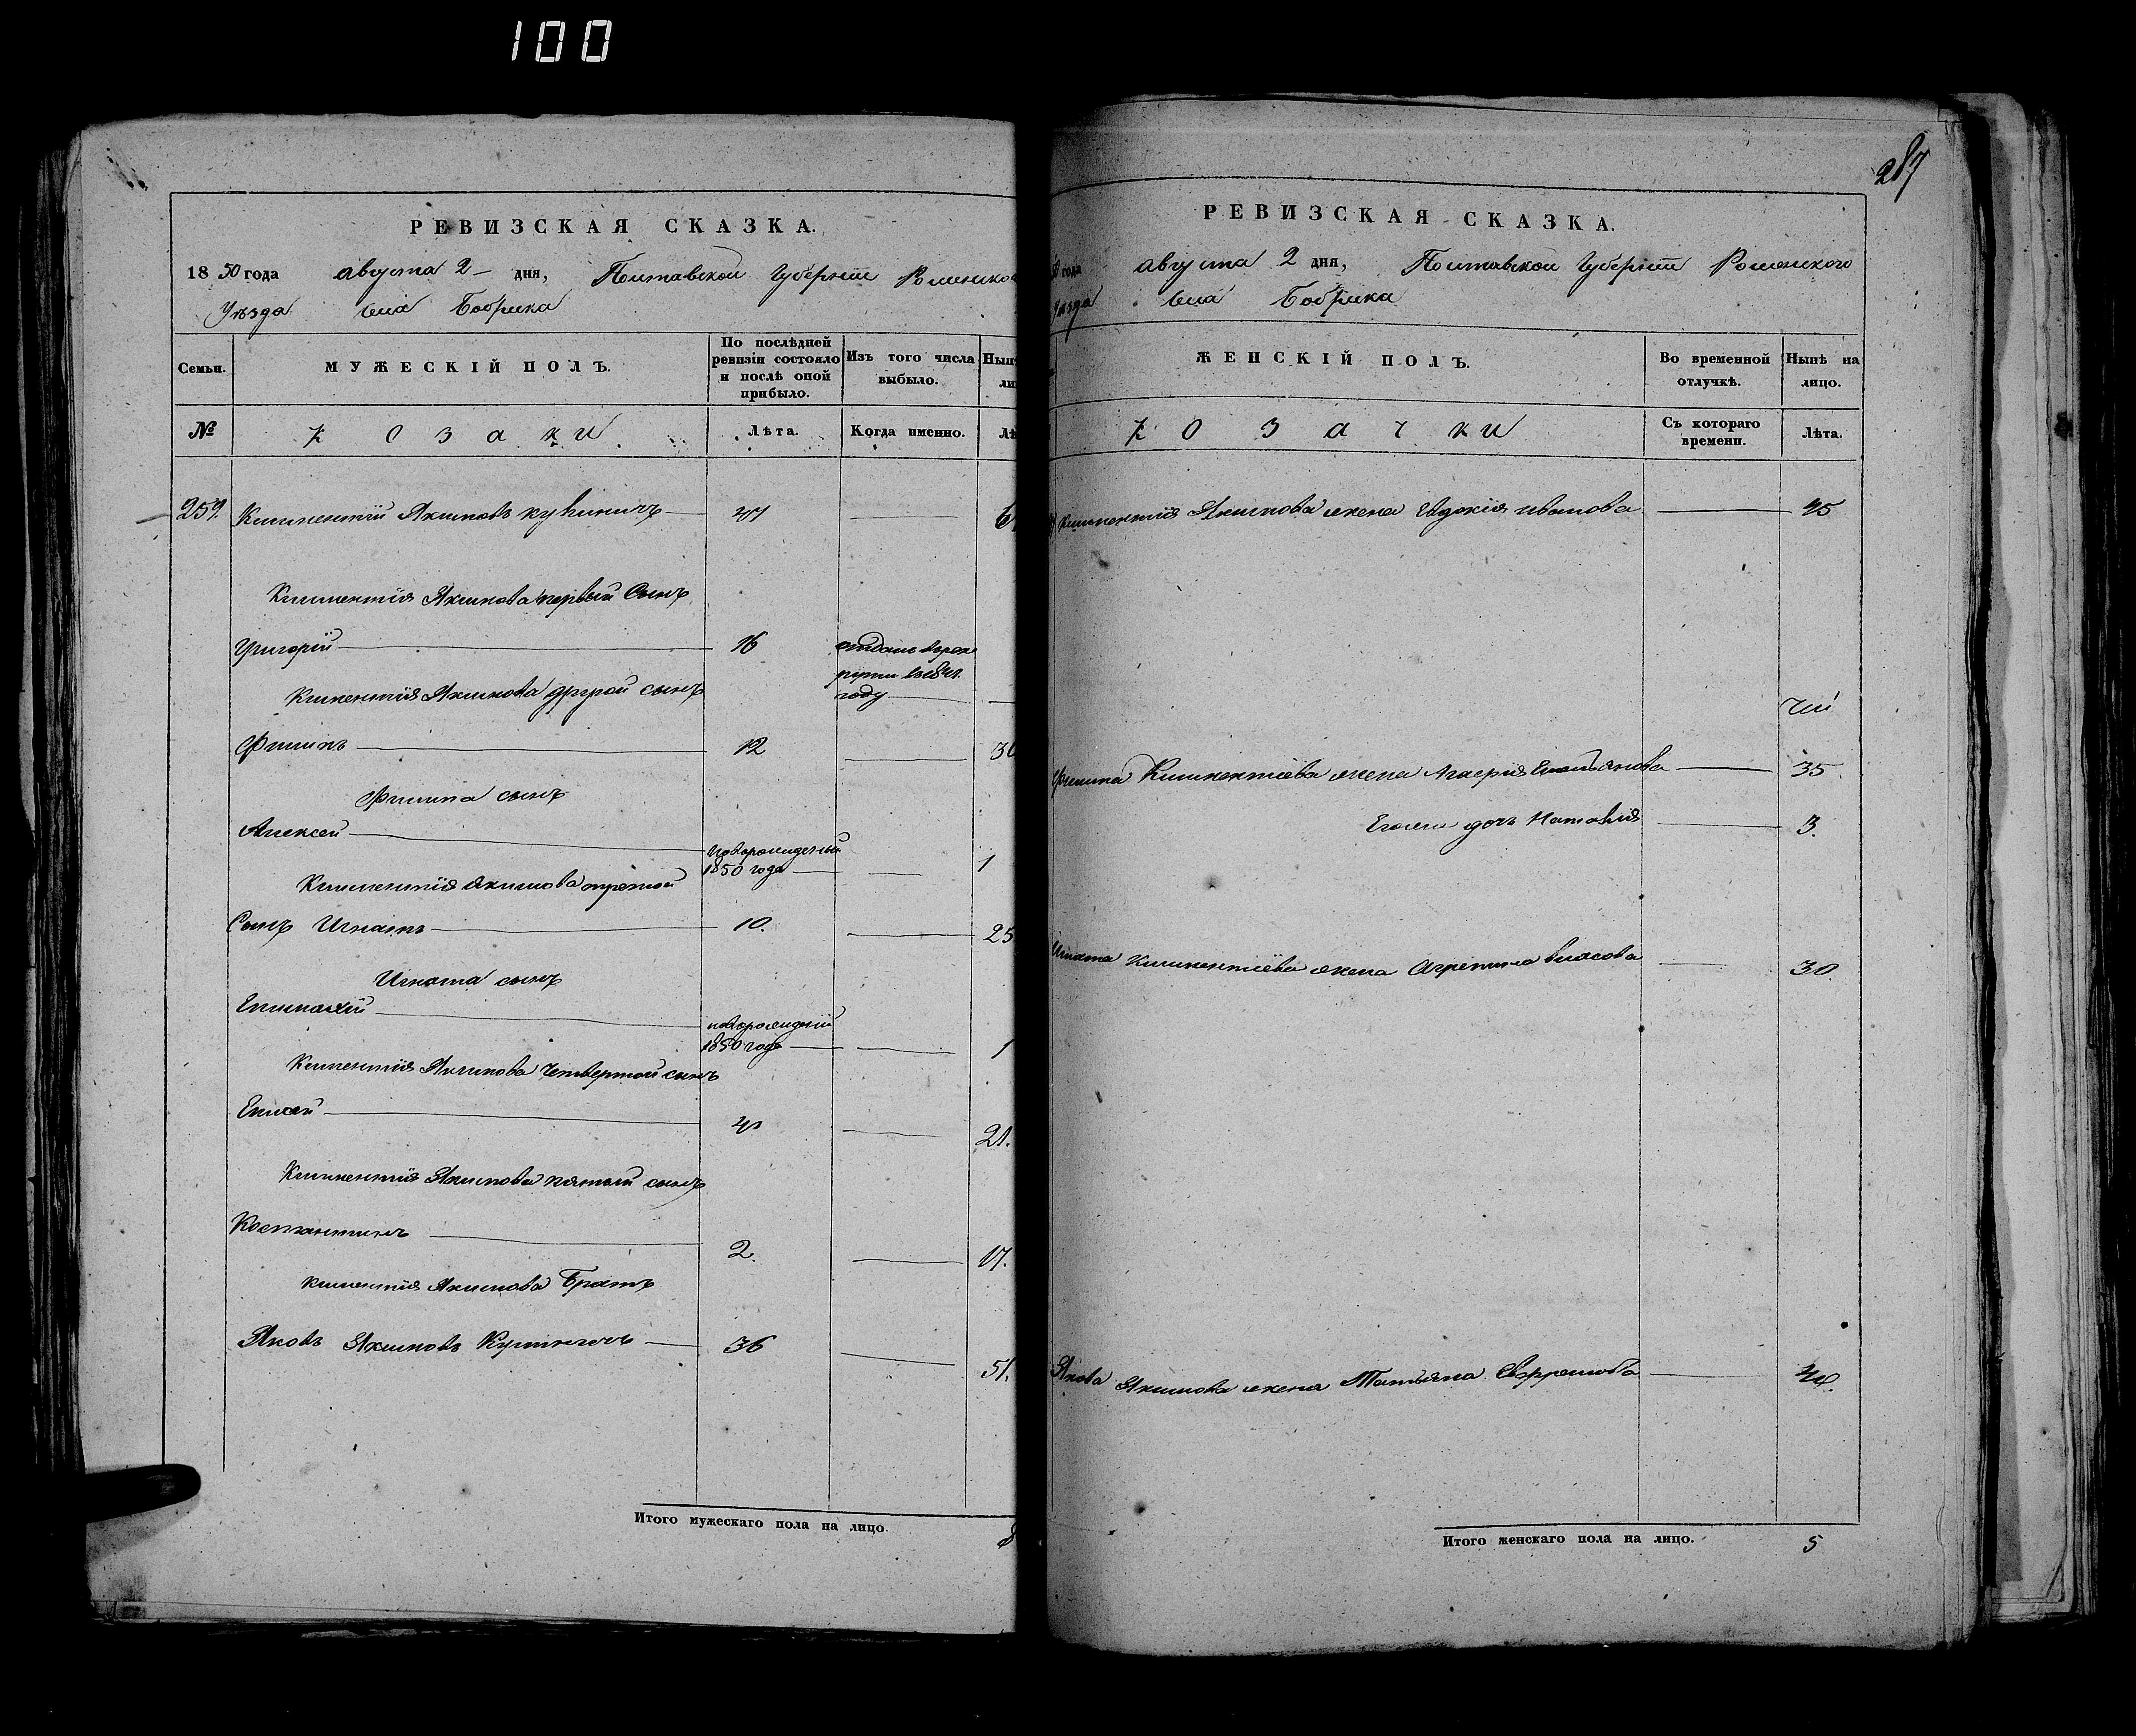 100
РЕВИЗСКАЯ СКАЗКА.
1850 года августа 2 дня, Полтавской Губернии Роменского
Уѣзда села Бобрика
Семьи.
МУЖЕСКІЙ ПОЛЪ.
По послѣдней ревизіи состояло и послѣ оной прибыло.
Изъ того числа выбыло.
№
козаки
Лѣта.
Когда именно.
259. Климентий Якимовъ
Климентия Якимова первый Сынъ
Григорій 16 отданъ въ рек
рути
году
Климентия Якимова другой сынъ
Филипъ 12
Филипа сынъ
Алексей новорожденый
1850 года 1
Климентия Якимова третой
Сынъ Игнатъ 10. 25
Игната сынъ
Епимахій новорожденій
1850 года 1
Климентия Якимова четвертой сынъ
Елисей 21.
Климентия Якимова пятый сынъ
Костантинъ 2. 17.
Климентия Якимова Братъ
Яковъ Якимовъ 36 51.
Итого мужескаго пола на лицо. 8
287
РЕВИЗСКАЯ СКАЗКА.
года августа 2 дня, Полтавской Губернии Роменского
Уѣзда села Бобрика
ЖЕНСКІЙ ПОЛЪ.
Во временной отлучкѣ.
Нынѣ на лицо.
козачки
Съ котораго времени.
Лѣта.
Климентия Якимова жена Евдокия иванова 45
Филипа Климентиева жена Емельянова 35.
Егожъ дочь Наталия 3.
Игната Климентиева жена Агрепина власова 30.
Якова Якимова жена Татьяна
Итого женскаго пола на лицо. 5